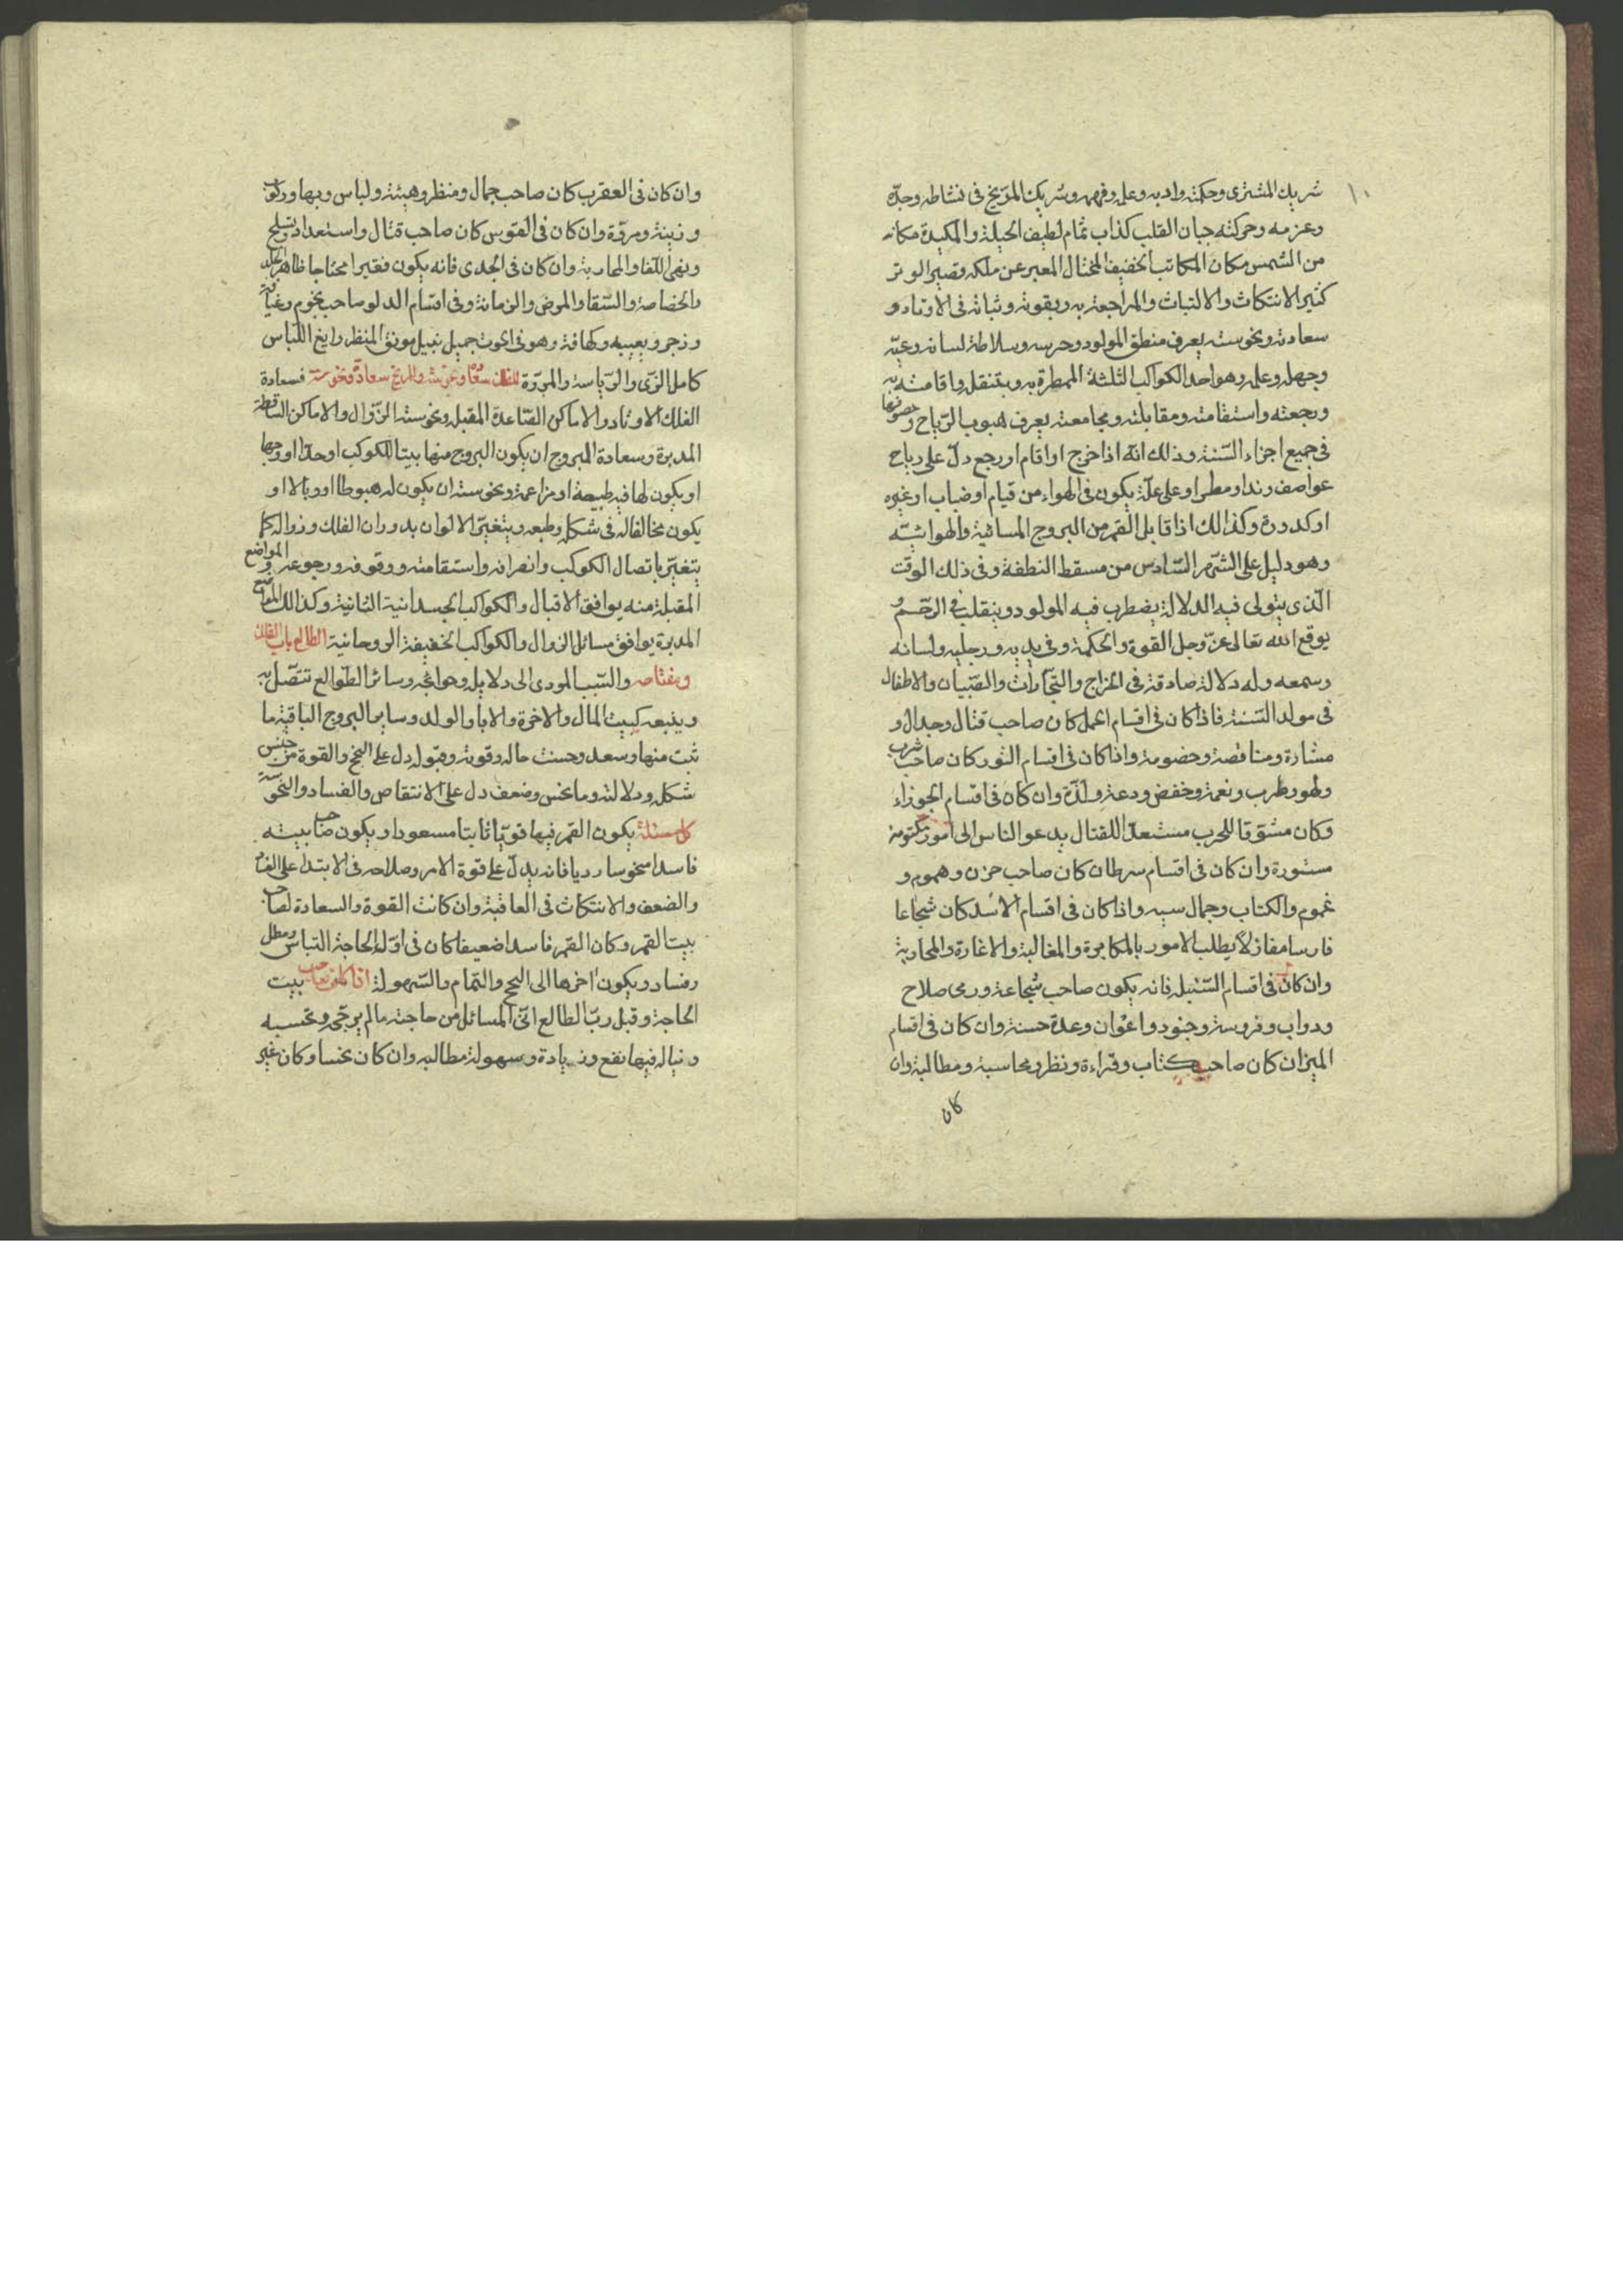 ١٠
شريك المشترى وحكمته وادبه وعلمه وفهمه وشريك المرّيخ فى نشاطه وجدّه
وعزمه وحركته جبان القلب كذاب نمّام لطيف الحيلة والمكيدة مكانه
من الشمس مكان الكاتب الخفيف المختال المعبر عن ملكه وقصير الوتر
كثير الانتكاث والالتباث والمراجعة به وبقوته وثباته فى الاوتاد و
سعادته ونحوسته يعرف منطق المولود وحرسه وسلاطة لسانه وعيّه
وجهله وعلمه وهو احد الكواكب الثلثة الممطرة به وبتنقله واقامته
ورجعته واستقامته ومقابلته ومجامعته يعرف هبوب الرّياح و
فى جميع اجزاء السّنة وذلك انّه اذا خرج او اقام او رجع دلّ على رياح
عواصف وندا ومطر او على علّة يكون فى الهواء من قيام او ضباب او غيره
او كدورة وكذالك اذا قابل القمر من البروج المائية والهوائيّة
وهو دليل على الشّهر السّادس من مسقط النطفة وفى ذلك الوقت
الّذى يتولى فيه الدلالة يضطرب فيه المولود وينقلب فى الرّحم و
يوقع الله تعالى عزّ وجل القوة والحكمة وفى يديه ورجليه ولسانه
وسمعه وله دلالة صادقة فى المزاج والتجارات والصّبيان والاطفال
فى مولد السّنة فاذا كان فى اقسام الحمل كان صاحب قتال وجدال و
مشارة ومناقصة وخصومة واذا كان فى اقسام الثور كان صاحب شرب
ولهو وطرب ونغمة وخفض ودعة ولذّة وان كان فى اقسام الجوزاء
وكان مشوّقا للحرب مستعدّا للقتال يدعو الناس الى امور مكتومة
مستورة وان كان فى اقسام سرطان كان صاحب حزن وهموم و
غموم والكتاب وجمال سيه واذا كان فى اقسام الاسد كان شجاعا
فارسا مغازلاً يطلب الامور بالمكابرة والمغالبة والاغارة والمحاربة
وان كان فى اقسام السّنبلة فانه يكون صاحب شجاعة ورمى صلاح
ودواب وفروسة وجنود واعوان وعدة حسنة وان كان فى اقسام
الميزان كان صاحب كتاب وقراءة ونظر ومحاسبة ومطالبة وان
كان
وان كان فى العقرب كان صاحب جمال ومنظر وهيئة ولباس وبها وركوب
وزينة ومروّة وان كان فى القوس كان صاحب قتال واستعداد وتسلح
ونهى اللقا والمحاربة وان كان فى الجدى فانه يكون فقيرا محتاجا ظاهر
والخصاصة والشقا والمرض والزمانة وفى اقسام الدلو صاحب نجوم وغيافة
وزجر وتعبيه وكهانة وهو فى الحوت جميل نبيل مونق المنظر رايع اللباس
كامل الزى والرّياسة والمروّة للفلك سعادة ونحوسة وللبرج سعادة ونحوسة فسعادة
الفلك الاوتاد والاماكن الصّاعدة المقبلة ونحوسته الزّوال والاماكن الساقطة
المدبرة وسعادة البروج ان يكون البروج منها بيتا للكوكب او حدّا او وجها
او يكون لها فيه طبيعة او مزاعمة ونحوسته ان يكون له هبوطا او وبالا او
يكون مخالفا له فى شكله وطبعه ويتغيّر الالوان بدوران الفلك وزواله كما
يتغيّر باتصال الكوكب وانصرافه واستقامته ووقوفه ورجوعه والمواضع
المقبلة منه يوافق الاقبال والكواكب الجسدانية الثانية وكذالك المواضع
المدبرة يوافق مسائل الزوال والكواكب الخفيفة الروحانية الطالع باب الفلك
ومفتاحه والسّبب المودى الى دلايله وحوائجه وسائر الطّوالع تتصّل به
ويتبعه كبيت المال والاخوة والابا والولد وساير البروج الباقية ما
ثبت منها وسعد وحسنت حاله وقوته وقبوله دل على النجح والقوة من جنس
شكله ودلالته وما نحس وضعف دل على الانتقاص والفساد والنحوسة
كل مسئلة يكون القمر فيها قويّا ثابتا مسعودا ويكون صاحب بيته
فاسدا منحوسا رديا فانه يدلّ على قوة الامر وصلاحه فى الابتدا على الفساد
والضعف والانتكاث فى العاقبة وان كانت القوة والسعادة لصاحب
بيت القمر وكان القمر فاسدا ضعيفا كان فى اوّل الحاجة التباس ومطل
وفساد ويكون اخرها الى النجح والتمام والسّهولة اذا كان صاحب بيت
الحاجة وقبل ربّ الطالع اتى المسائل من حاجته مالم يرجّى ويحتسبه
ونيال فيها نفع وزيادة وسهولة مطالبه وان كان نحسا وكان غير